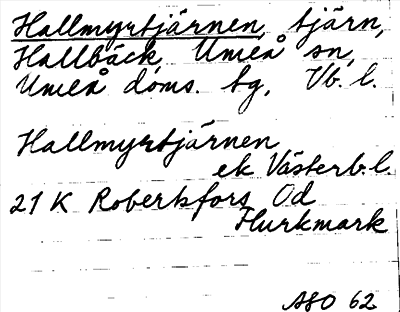 Hallmyrtjärnen, tjärn,
Hallbäck, Umeå sn,
Umeå doms. tg, Vb. l.
Hallmyrtjärnen
ek Västerb. l.
21 K Robertsfors Od
Hurkmark
ASO 62